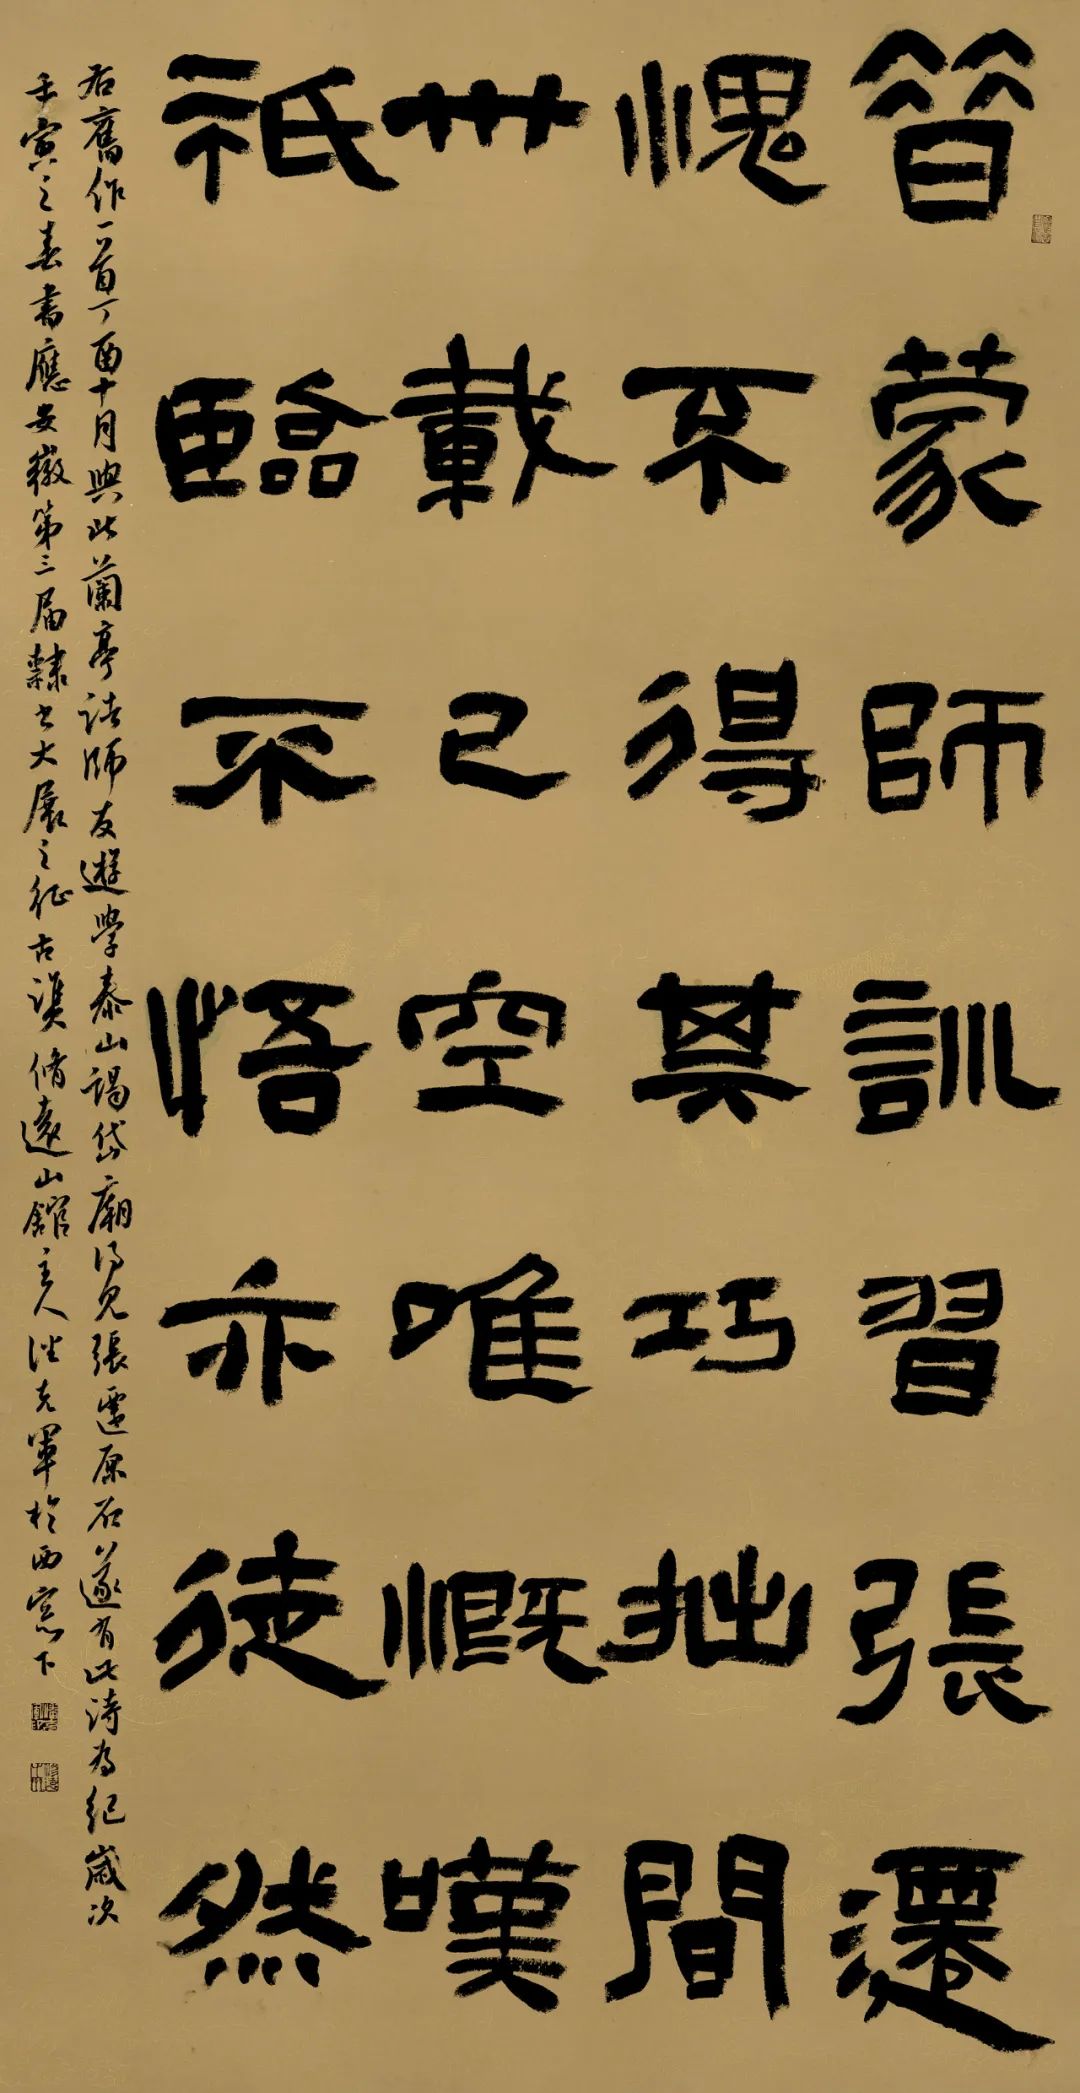 昔蒙師訓習張遷
愧不得其巧拙間
卅載已空唯慨嘆
祇臨不悟亦徒然
右舊作一首丁酉十月與此蘭亭諸師友遊學泰山謁岱廟得見張遷原石遂有此詩為紀歲次
壬寅之春書應安徽第三届隸書大展之征古漢脩遠山館主人 克軍於西窓下